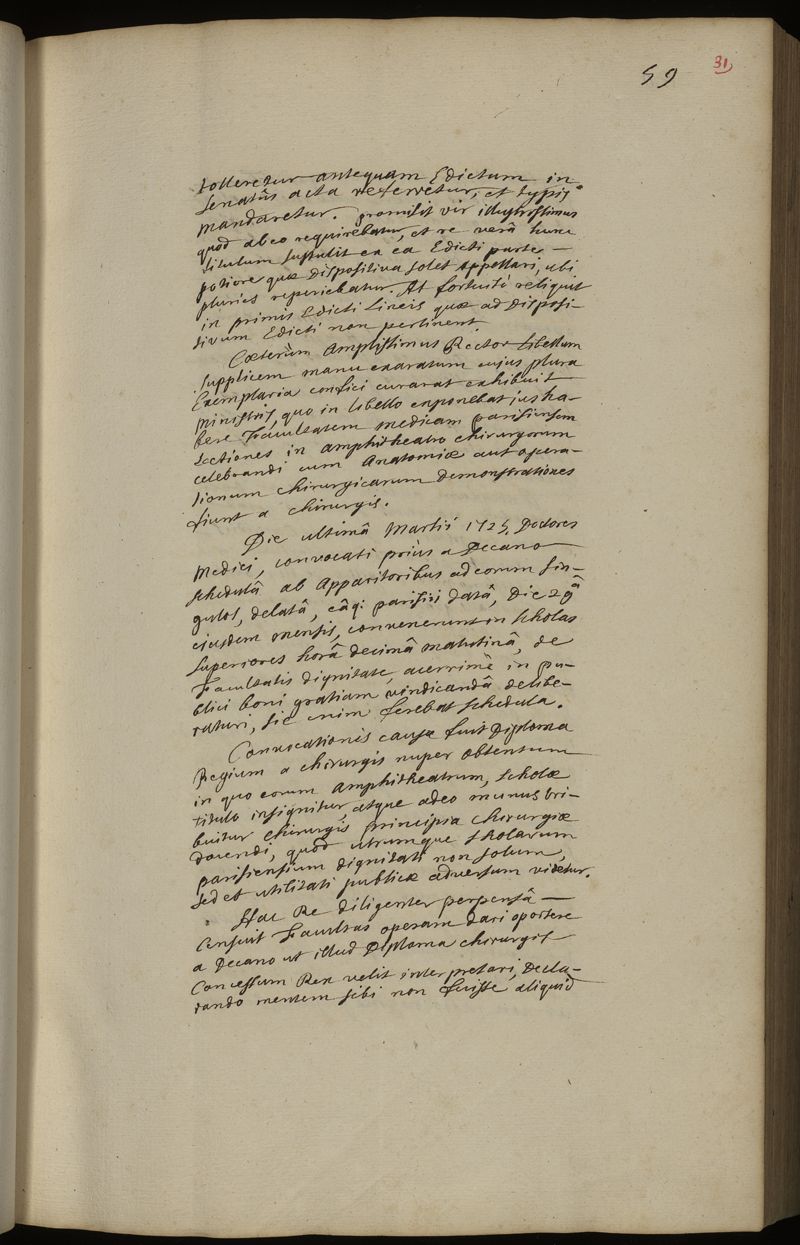 59 31
tolleretur antequam Edictum in
senatûs acta referretur, et typis
mandaretur. promisit vir illustrissimus
quod ab eo requirebatur, et re verâ hunc
titulum sustulit ex ea Edicti parte
potiore quæ dispositiva solet appellari, ubi
pluries reperiebatur. At fortuitò reliquit
in primis Edicti Lineis quæ ad disposi-
tivum Edicti non pertinent.
Cœterùm Amplissimus Rector libellum
supplicem manu exaratum cujus plura
Exemplaria confici curarat exhibuit
ministris, quo in libello exponebat jus ha-
bere Facultatem medicam parisiensem
Lectiones in amphitheatro chirurgorum
celebrandi cum Anatomiæ aut opera-
tionum chirurgicarum demonstrationes
fiunt a chirurgis.
Die ultimâ Martii 1725, Doctores
Medici, convocati priùs a Decano
schedulâ ab Apparitoribus ad eorum sin-
gulos, delatâ, eâq; parisiis datâ, Die 29â
ejusdem mensis, convenerunt in scholas
superiores horâ decimâ matutinâ, de
Facultatis dignitate, acerrimè in pu-
blici boni gratiam vindicandâ delibe-
raturi, sic enim ferebat schedula.
Convocationis causa fuit Diploma
Regium a chirurgis nuper obtentum
in quo eorum Amphitheatrum, scholæ
titulo insignitur, atque adeo munus tri-
buitur chirurgis principia chirurgiæ
docendi, quod utrumque scholarum
parisiensium dignitati non solum,
sed et utilitati publicæ adversum videtur.
Hac Re diligenter perpensâ
censuit Facultas operam dari oportere
a Decano ut illud Diploma chirurgis
Concessum Rex velit interpretari, Decla-
rando mentem sibi non fuisse aliquid